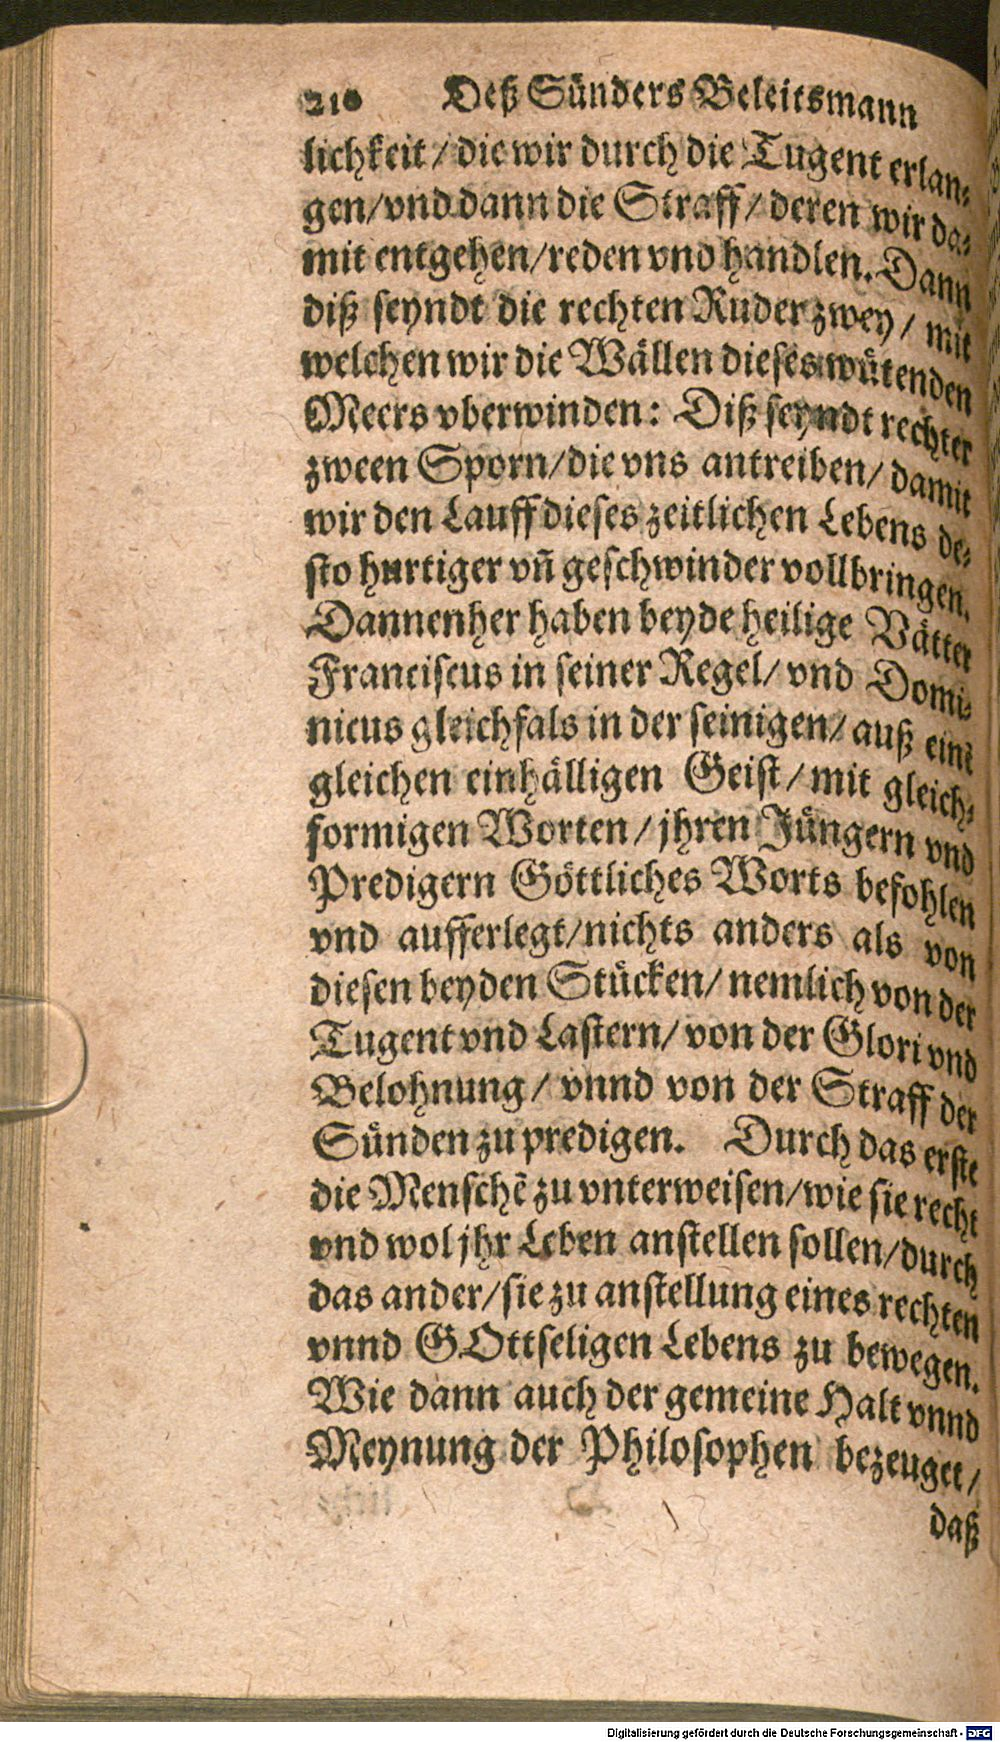 210 Deß Sünders Beleitsmann
lichkeit / die wir durch die Tugent erlan-
gen/vnd dann die Straff / deren wir da-
mit entgehen/reden vnd handlen. Dann
diß seyndt die rechten Ruder zwey / mit
welchen wir die Wällen dieses wütenden
Meers vberwinden: Diß seyndt rechter
zween Sporn/die vns antreiben/ damit
wir den Lauff dieses zeitlichen Lebens de-
sto hurtiger vñ geschwinder vollbringen.
Dannenher haben beyde heilige Vätter
Franciscus in seiner Regel/ vnd Domi-
nicus gleichfals in der seinigen/ auß einē
gleichen einhälligen Geist / mit gleich-
formigen Worten / jhren Jüngern vnd
Predigern Göttliches Worts befohlen
vnd aufferlegt/nichts anders als von
diesen beyden Stücken/ nemlich von der
Tugent vnd Lastern/ von der Glori vnd
Belohnung / vnnd von der Straff der
Sünden zu predigen. Durch das erste
die Menschē zu vnterweisen/wie sie recht
vnd wol jhr Leben anstellen sollen/durch
das ander/sie zu anstellung eines rechten
vnnd GOttseligen Lebens zu bewegen.
Wie dann auch der gemeine Halt vnnd
Meynung der Philosophen bezeuget /
daß
Digitalisierung gefördert durch die Deutsche Forschungsgemeinschaft - DFG